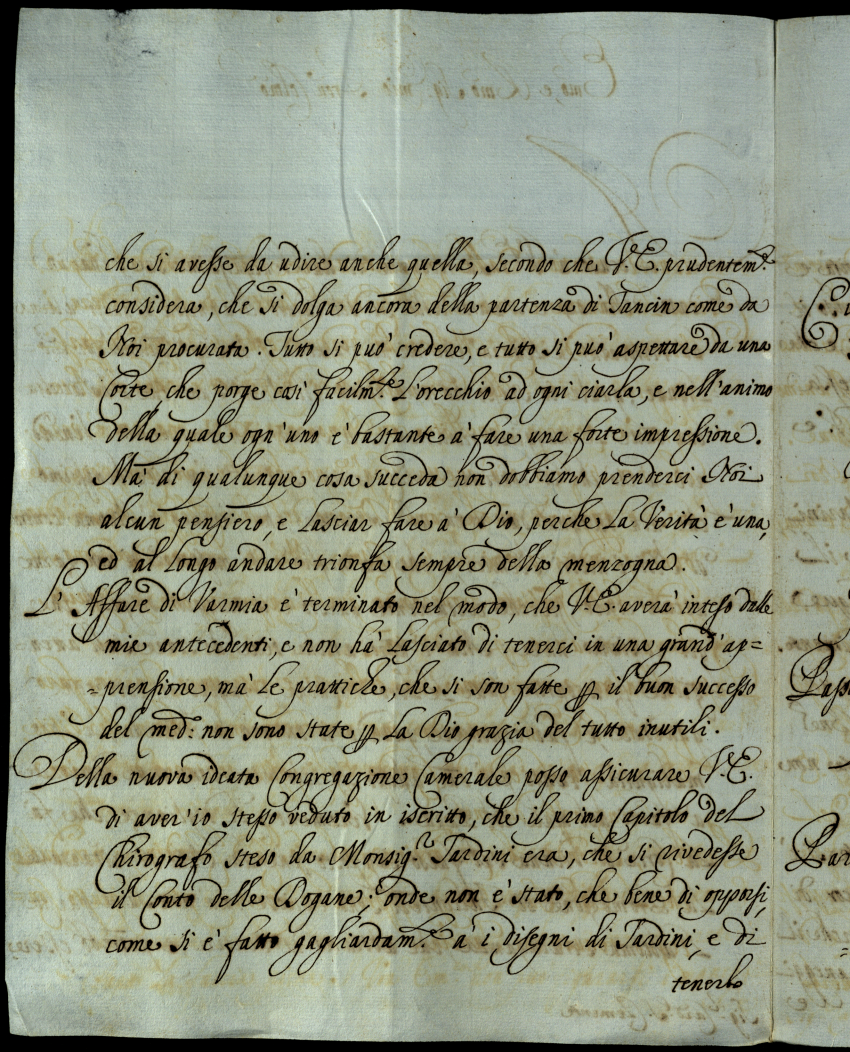 che si avesse da udire anche quella, secondo che V.E. prudentem.te
considera, che si dolga ancora della partenza di Tancin come da
Noi procurata. Tutto si può credere, e tutto si può aspettare da una
Corte, che porge così facilm.te L'orecchio ad ogni ciarla, e nell'animo
della quale ogn'uno è bastante à fare una forte impressione.
Mà di qualunque cosa succeda non dobbiamo prenderci Noi
alcun pensiero, e Lasciar fare à Dio, perche La Verità è una,
ed al Longo andare trionfa sempre della menzogna.
L'Affare di Varmia è terminato nel modo, che V.E. averà inteso dalle
mie antecedenti, e non hà Lasciato di tenerci in una grand'ap=
=prensione, mà Le prattiche, che si son fatte p il buon successo
del med: non sono state p La Dio grazia del tutto inutili.
Della nuova ideata Congregazione Camerale posso assicurare V.E.
di aver'io stesso veduto in iscritto, che il primo Capitolo del
Chirografo steso da Monsig.r Tardini era, che si rivedesse
il Conto delle Dogane; onde non è stato, che bene di opporsi,
come si è fatto gagliardam.te à i disegni di Tardini, e di
tenerlo